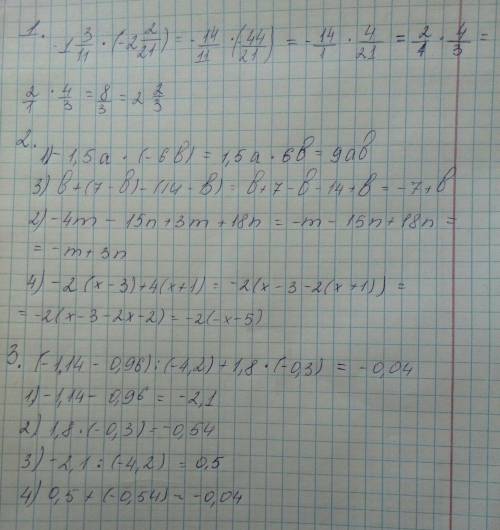 1. -1 3/11 · (-2 2/21) = -14/11 · (44/21) = -14/1 · 4/21 = 2/1 · 4/3 =
2/1 · 4/3 = 8/3 = 2 2/3
2. 1) -1,5a · (-6b) = 1,5a · 6b = 9ab
3) b+(7-b)-(14-b) = b+7-b-14+b = -7+b
2) -4m - 15n + 3m + 18n = -m - 15n + 18n =
= -m + 3n
4) -2(x-3)+4(x+1) = -2(x-3-2(x+1)) =
= -2(x-3-2x-2) = -2(-x-5)
3. (-1,14 - 0,96) : (-4,2) + 1,8 · (-0,3) = -0,04
1) -1,14 - 0,96 = -2,1
2) 1,8 · (-0,3) = -0,54
3) -2,1 : (-4,2) = 0,5
4) 0,5 + (-0,54) = -0,04